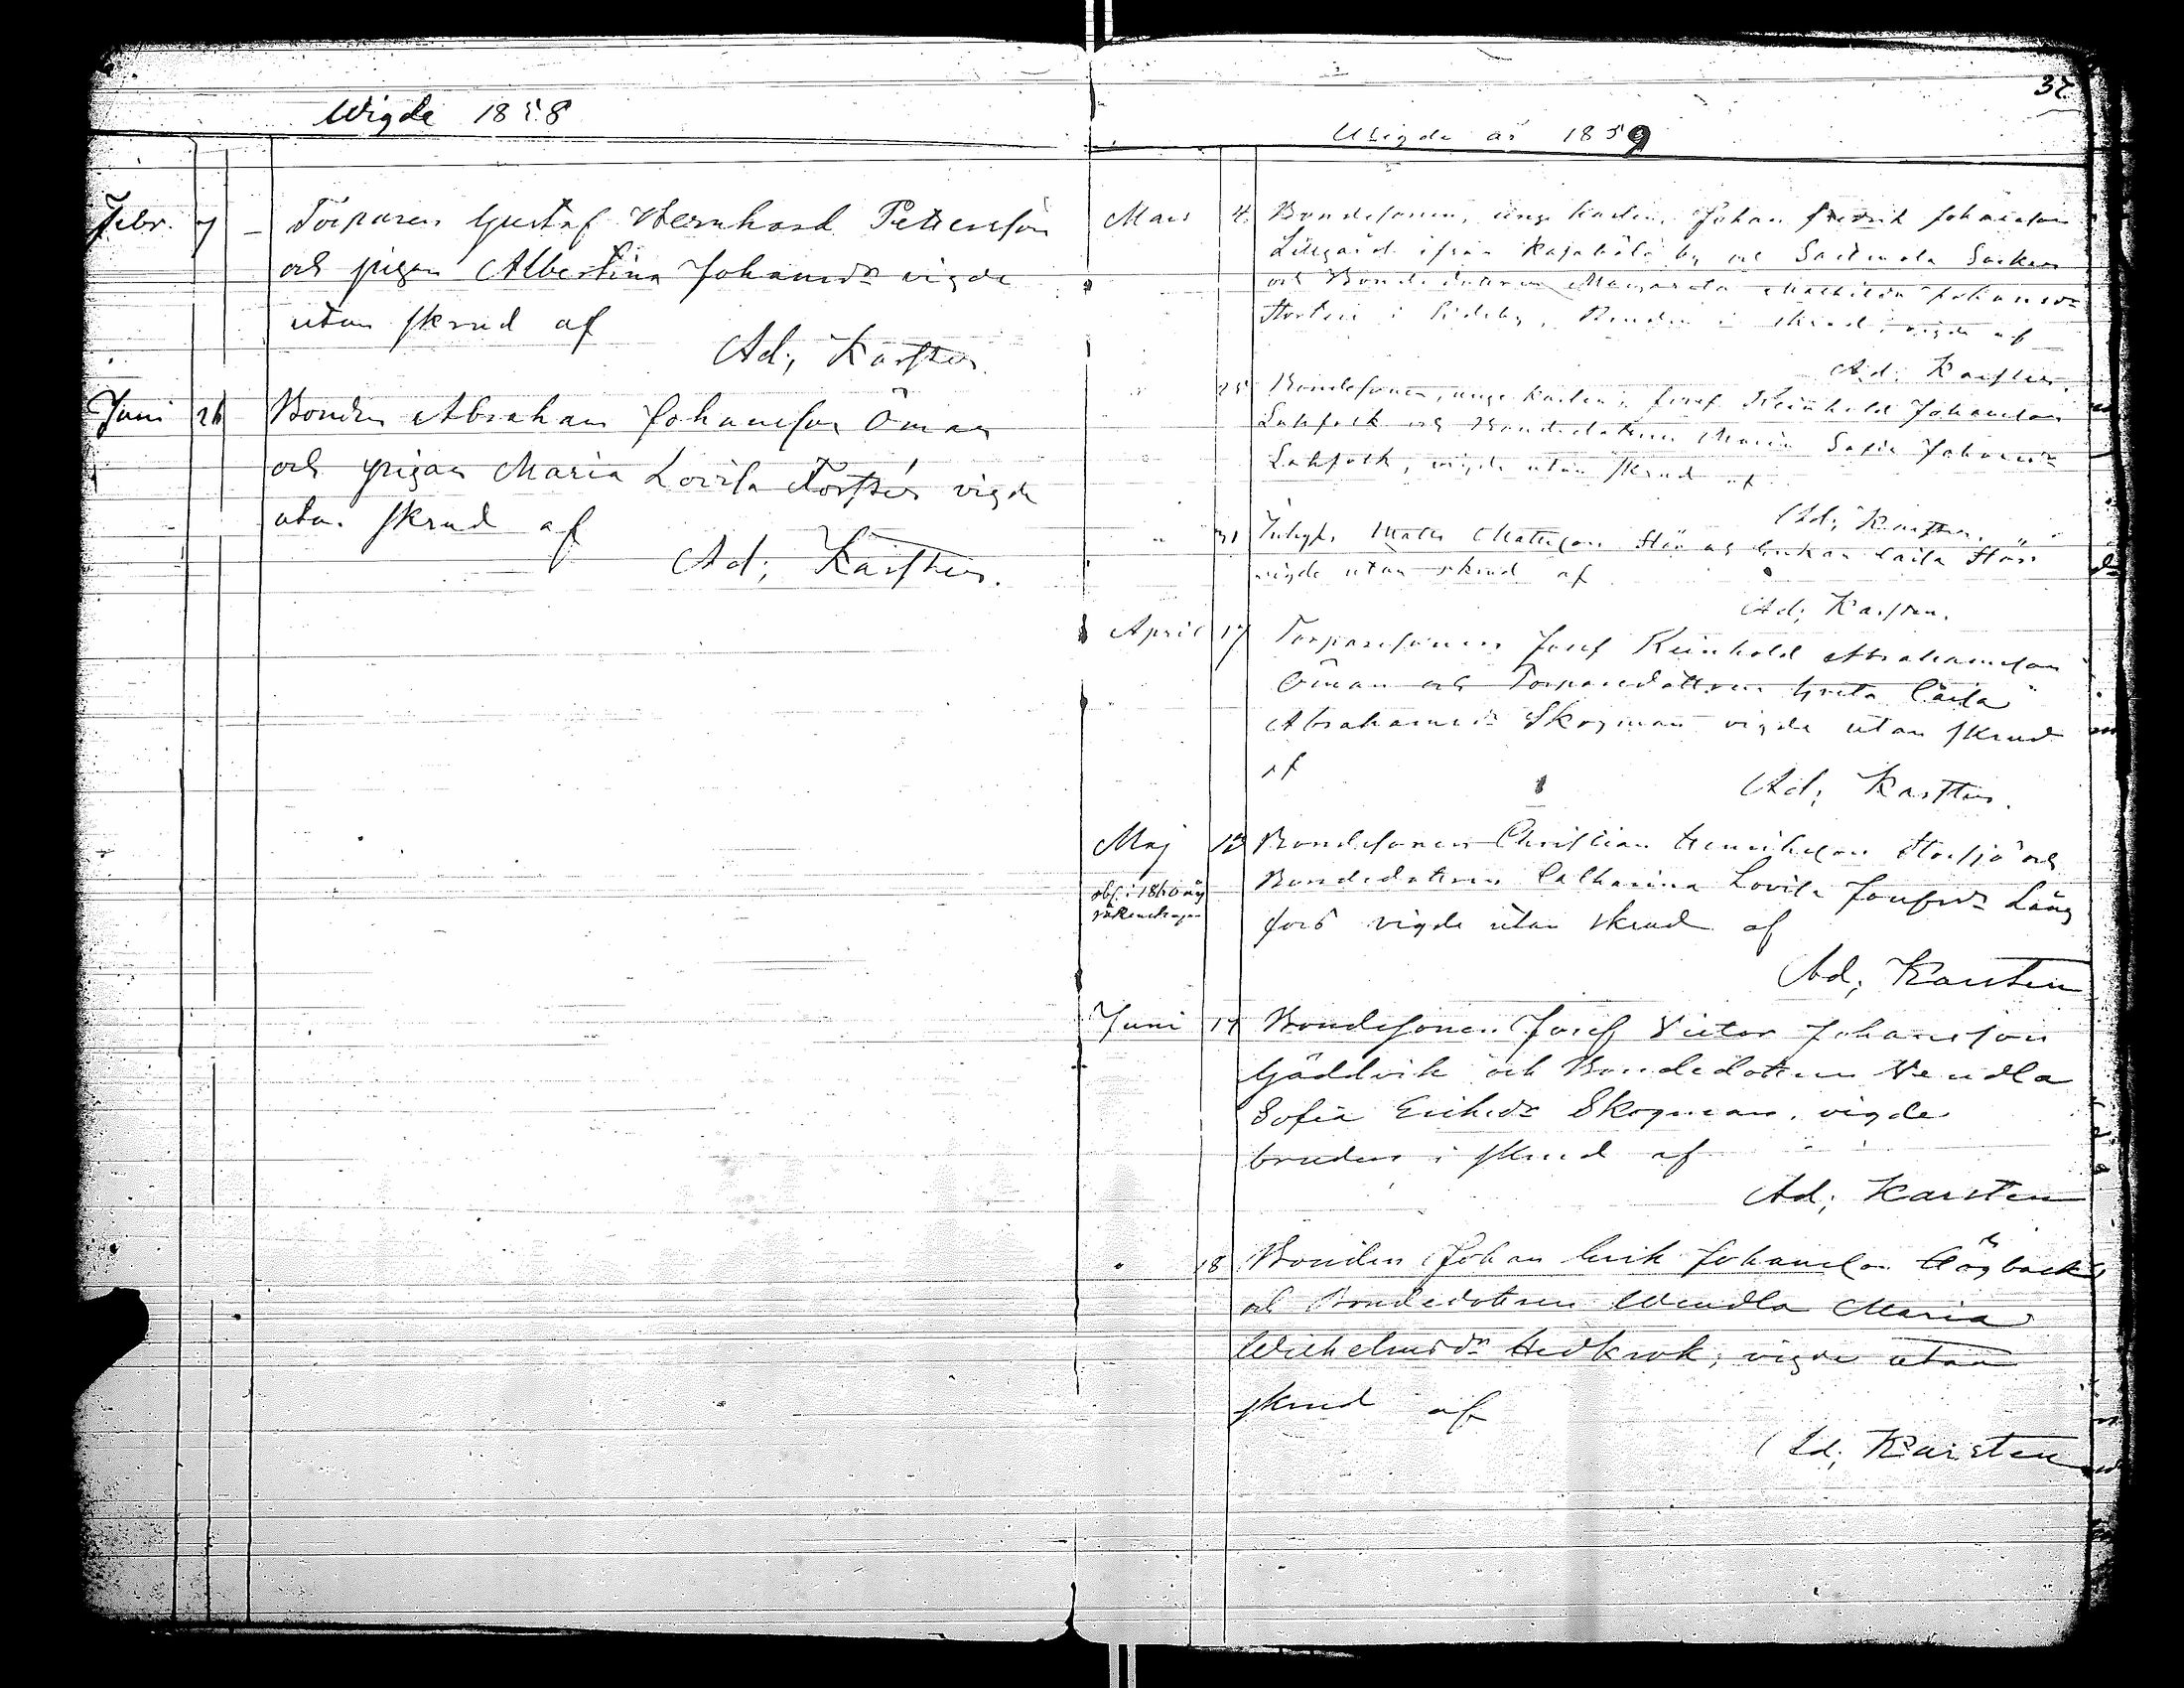 Wigde 1858
Febr. 7 – Torparen Gustaf Wernhard Pettersson
och pigan Albertina Johansdr vigde
utan skrud af
Ad; Karsten.
Juni 26 Bonden Abraham Johansson Öman
och pigan Maria Lovisa vigde
utan skrud af
Ad; Karsten.
37.
Wigde år 1859
Mars 4. Bondesonen, unge karlen, Johan Fredrik Johansson
Lillgård ifrån by och Socken
och Bondedottren Margareta Mathilda Johansdr
i Sideby, Bruden i skrud, vigde af
Ad; Karsten.
" 25 Bondesonen, unge karlen, Josef Reinhold Johansson
Lahfolk och Bondedottren Maria Sofia Johansdr
Lahfolk, vigde utan skrud af
Ad; Karsten.
" 31 Matts Mattsson och enkan Caisa
vigde utan skrud af
Ad; Karsten.
April 17 Torparesonen Josef Reinhold Abrahamsson
Öman och Torparedottren Greta Caisa
Abrahamsdr Skogman vigde utan skrud
af
Ad; Karsten.
Maj Bondesonen Christian Henriksson Storsjö och
obs. i 1860 års
räkenskaper
Bondedottren Catharina Lovisa Josefsdr Lång
fors vigde utan skrud af
Ad; Karsten
Juni 17 Bondesonen Josef Victor Johansson
Gäddvik och Bondedottren Vendla
Sofia Eriksdr Skogman, vigde
bruden i skrud af
Ad; Karsten
" 18 Bonden Johan Erik Johansson Högback
och Bondedottren Wendla Maria
Wilhelmsdr Hedkrok, vigde utan
skrud af
Ad; Karsten